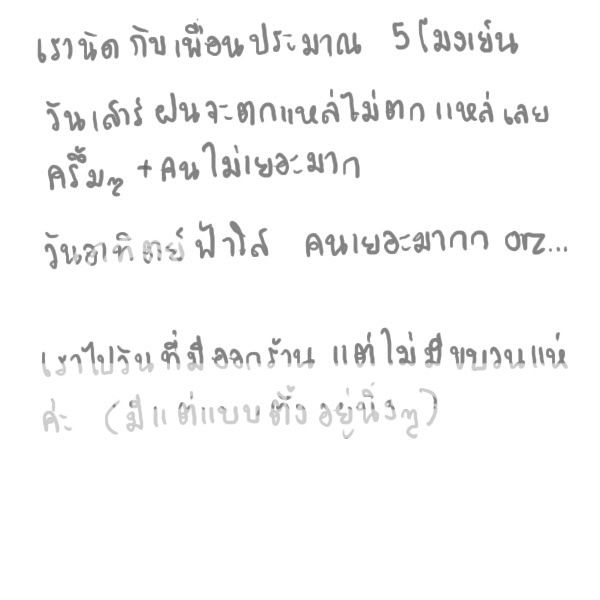 เรานัดกับเพื่อนประมาณ 5โมงเย็น
วันเสาร์ ฝนจะตกแหล่ไม่ตกแหล่เลย
ครึ้มๆ +คนไม่เยอะมาก
วันอาทิตย์ฟ้าใส คนเยอะมากก orz...
เราไปวันที่มีออกร้าน แต่ไม่มีขบวนแห่
ค่ะ (มีแต่แบบตั้งอยู่นิ่งๆ)